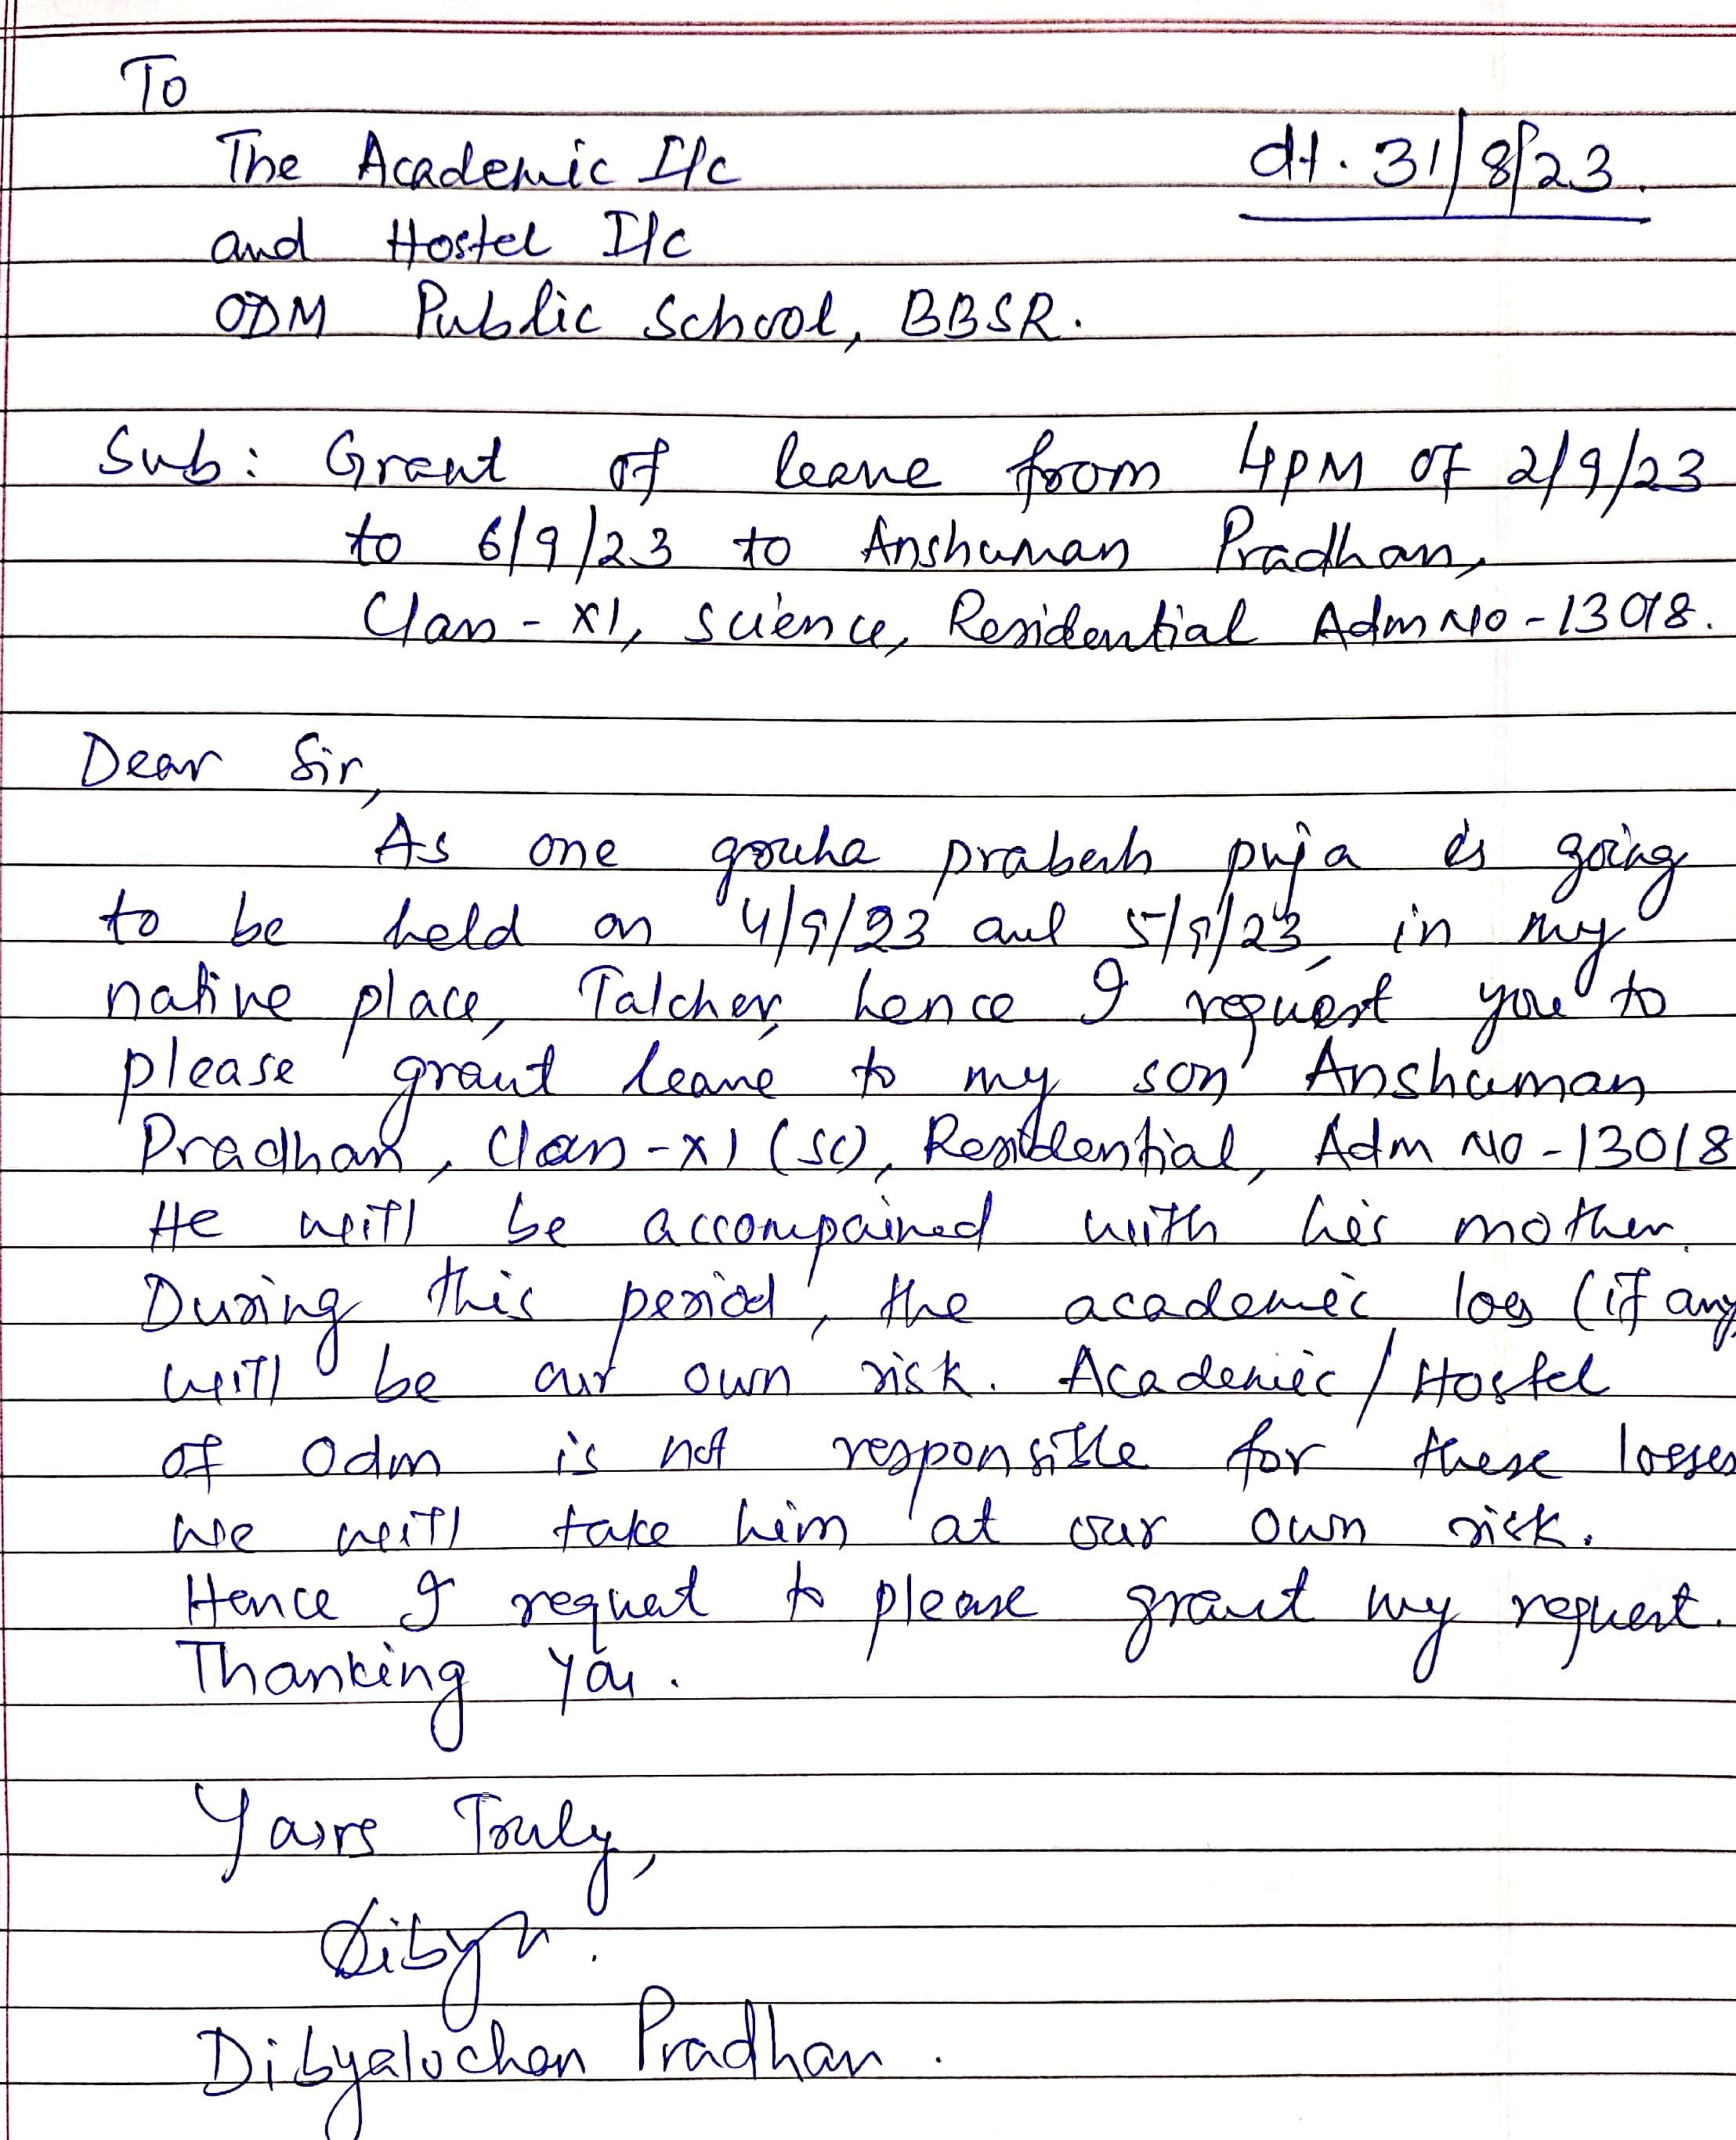 To
The Academic I/c
dt. 31/8/23.
and Hostel I/c
ODM Public School, BBSR.
Sub: Grant of leave from 4PM of 2/9/23
to 6/9/23 to Anshuman Pradhan,
Class - XI, Science, Residential Adm No - 13018.
Dear Sir,
As one gruha prabesh puja is going
to be held on 4/9/23 and 5/9/23, in my
native place, Talcher, hence I request you to
please grant leave to my son Anshuman
Pradhan, Class - XI (SC), Residential, Adm No - 13018
He will be accompained with his mother.
During this period, the academic loss (if any
will be our own risk. Academic / Hostel
of Odm is not responsible for these losses
We will take him at our own risk.
Hence I request to please grant my request.
Thanking you.
Yours Truly,
Dibya.
Dibyalochan Pradhan.